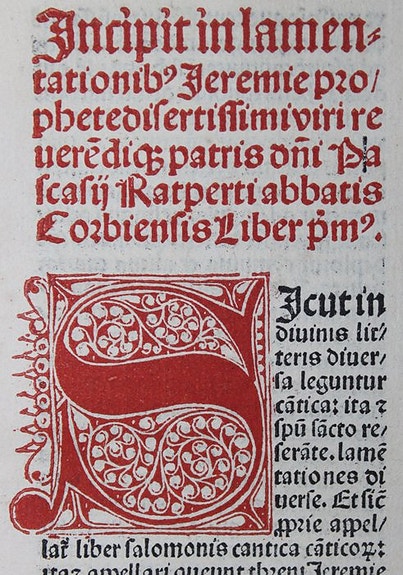 Incipit in lamen-
tationibꝰ Jeremie pro/
phete disertissimi viri re
uerēdiqꝫ patris dn̄i Pa
scasij Ratperti abbatis
Corbiensis Liber p̄mꝰ.
S
Icut in
diuinis lit/
teris diuer/
sa leguntur
cātica: ita ⁊
spū sācto re/
serāte. lamē
tationes di
uerse. Et sic̄
ꝓprie appel/
lat᷑ liber salomonis cantica cāticoꝝ:
itaꝫ appellari queunt threni Jeremie